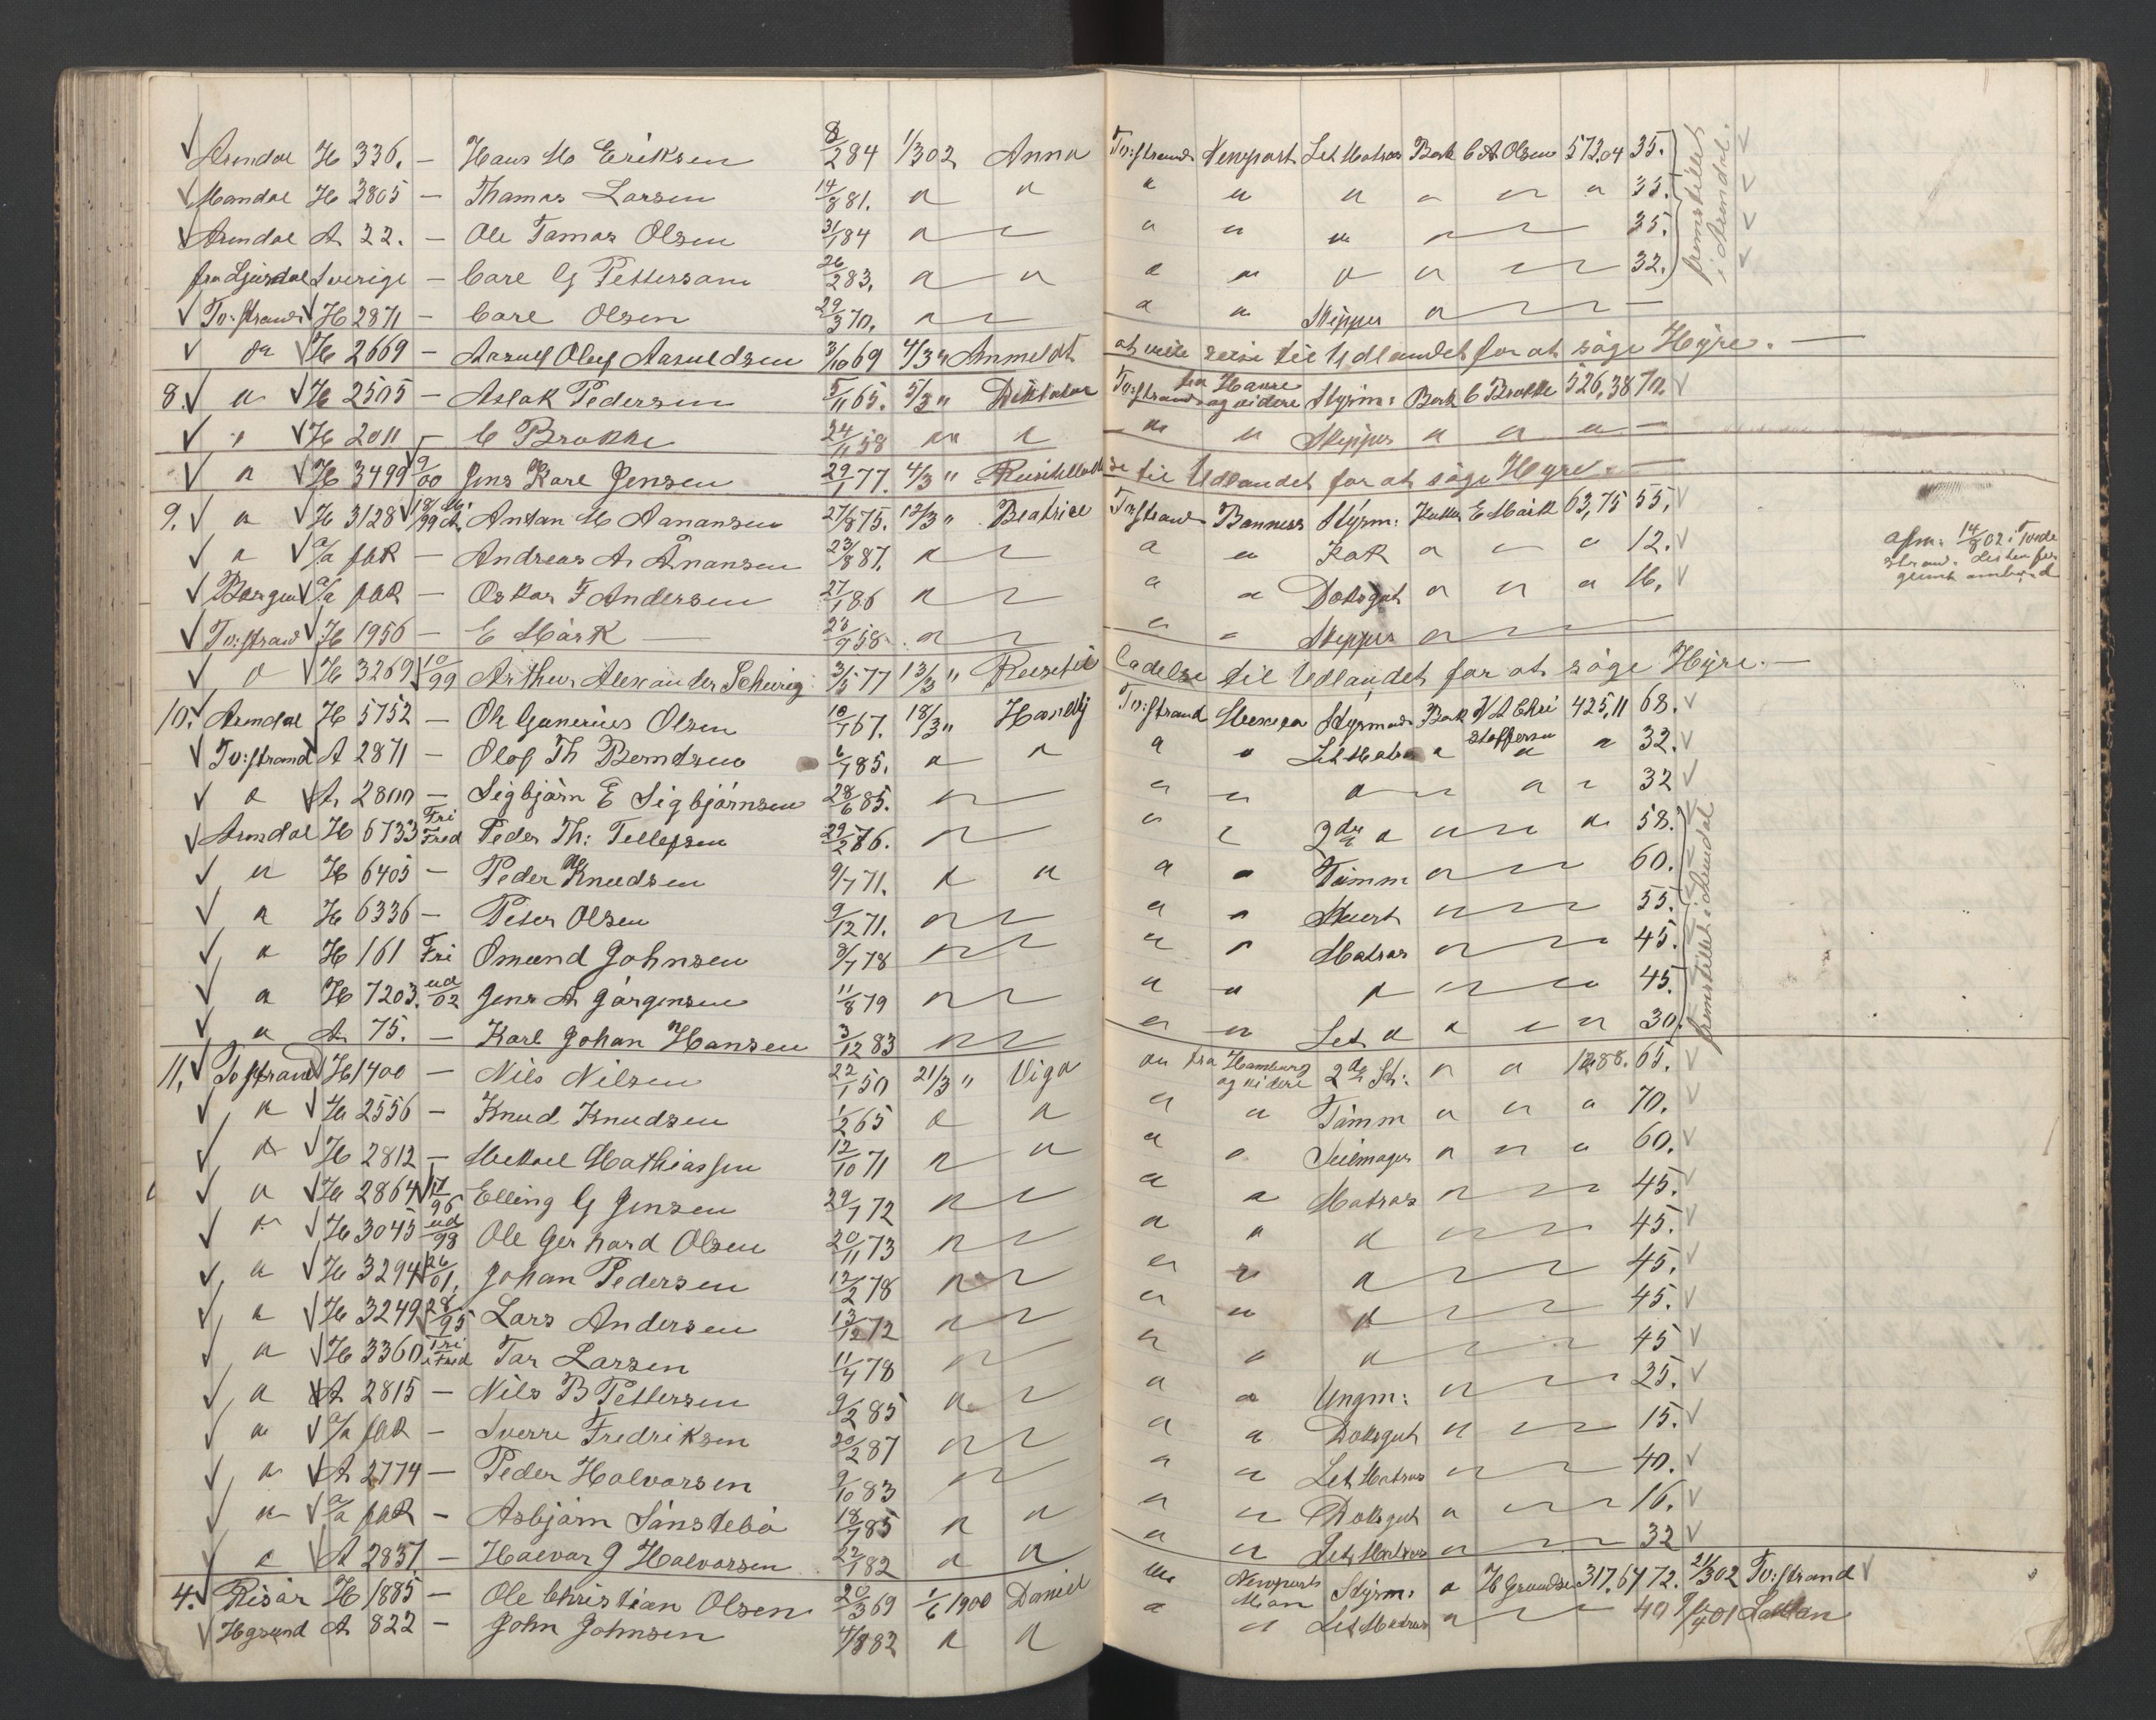 Arendal H 336. — Hans M Eriksen 8/2 84 1/3 02 Anna Tv:strand Newport Let Matros Bark C A Olsen 573,04 35.
Mandal H 3805 — Thomas Larsen 14/8 81. " " " " " " " " 35.
Arendal A 22. — Ole Tomas Olsen 31/1 84 " " " " " " 35.
fra Ljusdal Sverige — Carl G Pettersom 26/2 83. " " " " " " 32.
fremstillet i Arendal.
Tv:strand H 2871 — Carl Olsen 29/3 70. " " " " Skipper " —
" H 2669 — Aasuly Oluf Aasuldsen 3/10 69 4/3 " Anmeldt at ville reise til Udlandet for at søge Hyre. —
8. " H 2505 — Aslak Pedersen 5/11 65. 5/3 " Diktator Tv:strand fra Havre og videre Styrm: Bark C Brokke 526,38 70.
" H 2011 — C Brokke 24/11 58 " " " " Skipper " " " —
" H 3499 9/00 Jens Karl Jensen 29/1 77. 4/3 " Reisetilladelse til Udlandet for at søge Hyre. —
9. " H 3128 18/99 Antan M Aanansen 27/8 75. 12/3 " Beatrice Tv:strand Bonness Styrm: Kutter E Mørk 63,75 55.
" a/a fak — Andreas A Ånansen 23/8 87. " " " " Kok " " " 12.
afm: 14/8 02 i Tvede strand. Listen
Bergen a/a fak — Oskar F Andersen 27/1 86 " " " " Doksgut " " " 16.
Tv:strand H 1956 — E Mørk — 28/9 58 " " " " Skipper " —
" H 3269 10/99 Arthur Alexander Scheurig 3/5 77 13/3 " Reisetilladelse til Udlandet for at søge Hyre. —
10. Arendal H 5752 — Ole Gunerius Olsen 10/7 67. 18/3 " Havdlj Tv:strand Styrmand Bark N A Chri Stoffersen 425,11 68.
Tv:strand A 2871 — Olof Th Berndsen 6/7 85. " " " " Let Matros " " " 32.
" A 2800 — Sigbjørn E Sigbjørnsen 28/6 85. " " " " " " 32
Arendal H 6733 Fri Fred Peder Th: Tellefsen 29/2 76. " " " 2den " " " 58.
" H 6405 — Peder A Knudsen 9/7 71. " " " " Tømm " 60.
" H 6336 — Peter Olsen 9/12 71. " " " " Stuert " 55.
" H 161 Fri Omund Johnsen 8/7 78 " " " " Matros " 45.
" H 7203. ud/02 Jens A Jørgensen 11/8 79 " " " " " " 45.
" A 75. — Karl Johan Hansen 3/12 83 " " " " Let " " " " 30.
fremstillet i Arendal
11. Tv:strand H 1400 — Nils Nilsen 22/1 50 21/3 " Viga " fra Hamburg og videre 2den St: " " 1288. 65.
" H 2556 — Knud Knudsen 1/2 65 " " " " Tømm " " " 70.
" H 2812 — Mikael Mathiassen 12/10 71 " " " " Seilmager " " " 60.
" H 2864 17/96 Elling G Jensen 29/1 72 " " " " Matros " 45.
" H 3045 ud/98 Ole Gerhard Olsen 20/11 73 " " " " " " 45.
" H 3294 26/01. Johan Pedersen 12/2 78 " " " " " " 45.
" H 3249 28/95 Lars Andersen 13/12 72 " " " " " " 45.
" H 3360 Fri i Fred Tor Larsen 11/4 78 " " " " " 45
" A 2815 — Nils B Pettersen 9/2 85 " " " " Ungm: " 25.
" a/a fak — Sverre Fredriksen 20/2 87 " " " " Doksgut " 15.
" A 2774 — Peder Halvorsen 9/10 83 " " " Let Matros " 40.
" a/a fak — Asbjørn Sønstebø 18/7 85 " " " " Doksgut " 16.
" A 2857 — Halvor J Halvorsen 22/1 82 " " " " Let Matros " 32
4. Risør H 1885 — Ole Christian Olsen 20/3 69 1/6 1900 Daniel " Newport Mon Styrm: " H Grundse 317,67 72. 21/3 02 Tv:strand
A 822 — John Johnsen 4/8 82 " " " " Let Matros " 40 9/4 01